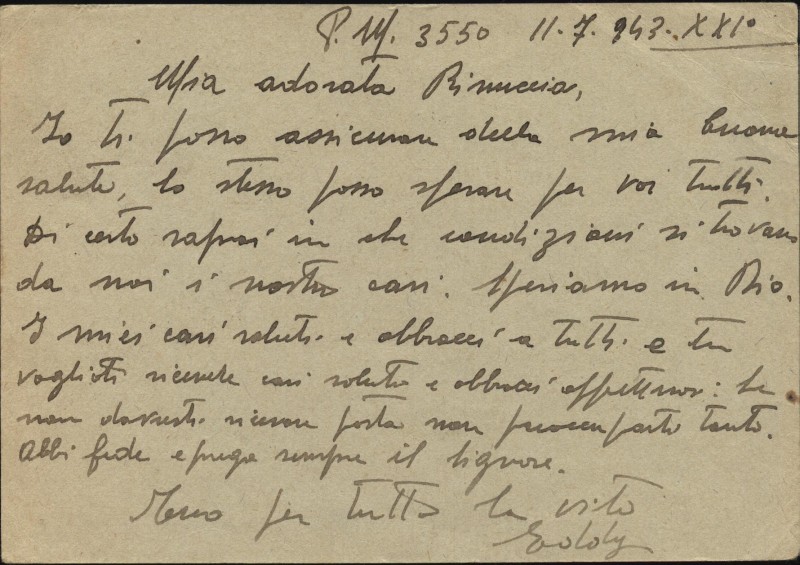 P.M. 3550 11-7-943-XXI°
Mia adorata Rinuccia,
Io ti posso assicurare della mia buona
salute, lo stesso posso sperare per voi tutti.
Di certo saprai in che condizioni si trovano
da noi i nostri cari. Speriamo in Dio.
I miei cari saluti e abbracci a tutti e tu
vogliati ricevere cari saluti e abbracci affettuosi: Se
non dovresti ricevere posta non preoccuparti tanto.
Abbi fede e prega sempre il Signore.
per tutta la vita